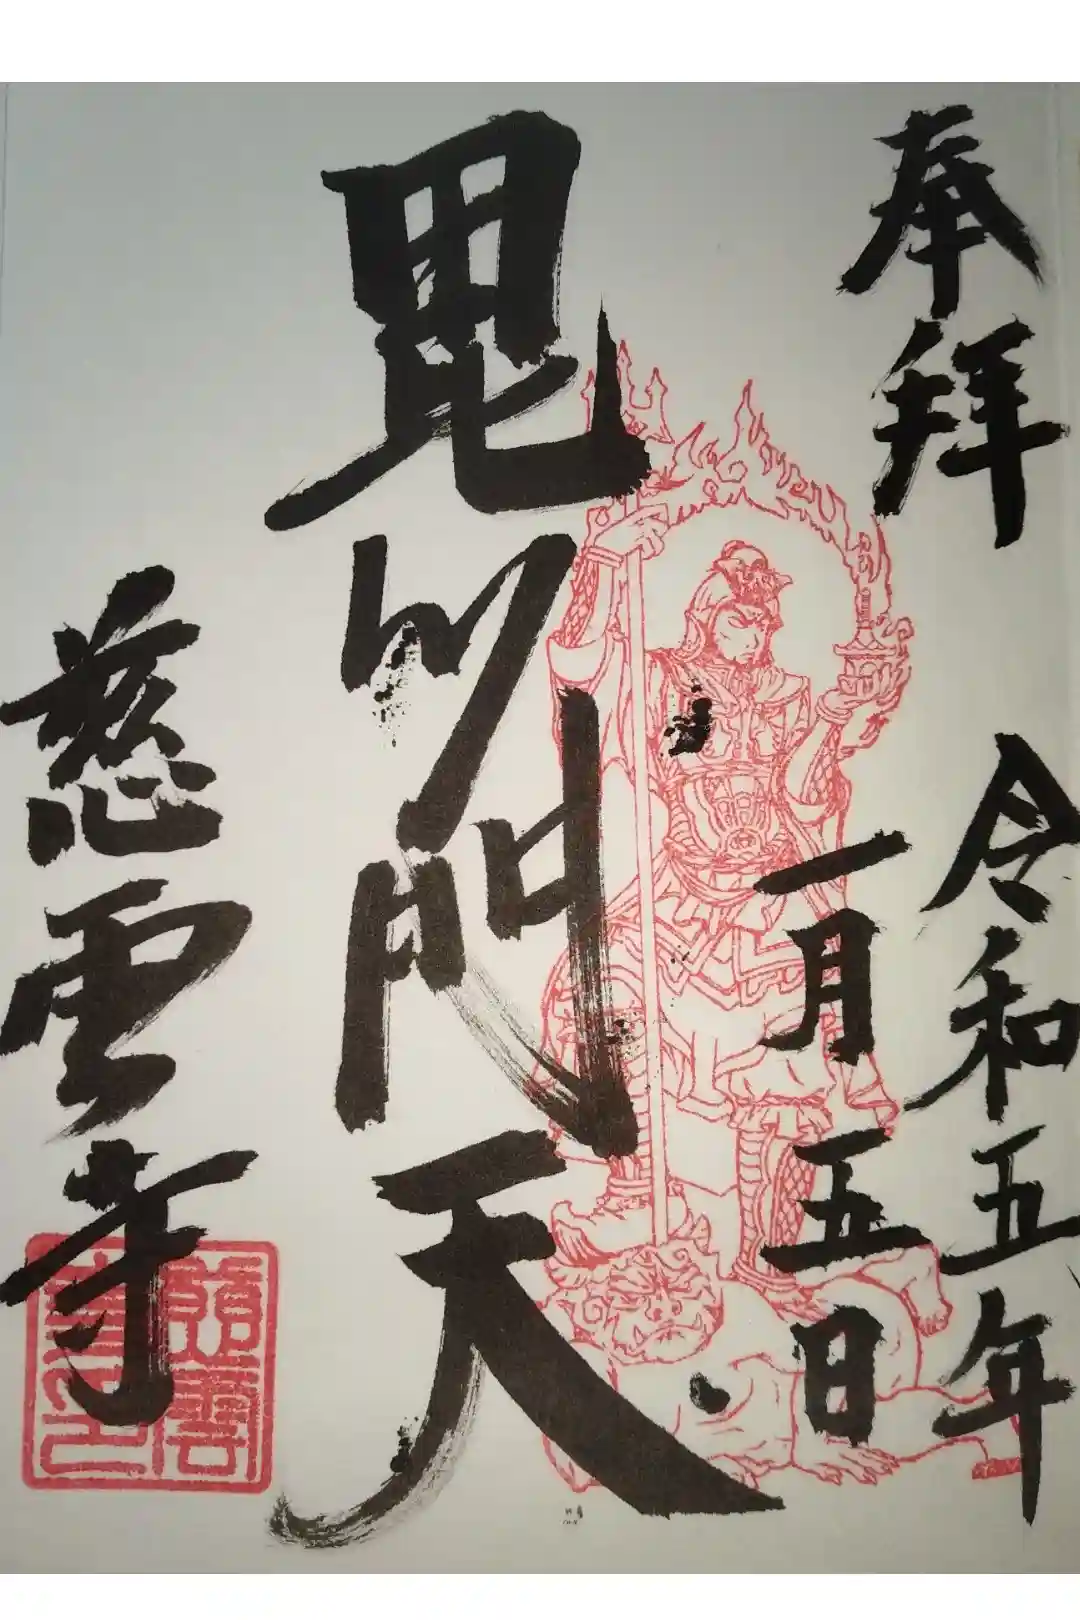 奉拝
令和五年
一月五日
毘沙門天
慈雲寺
慈雲
寺之印